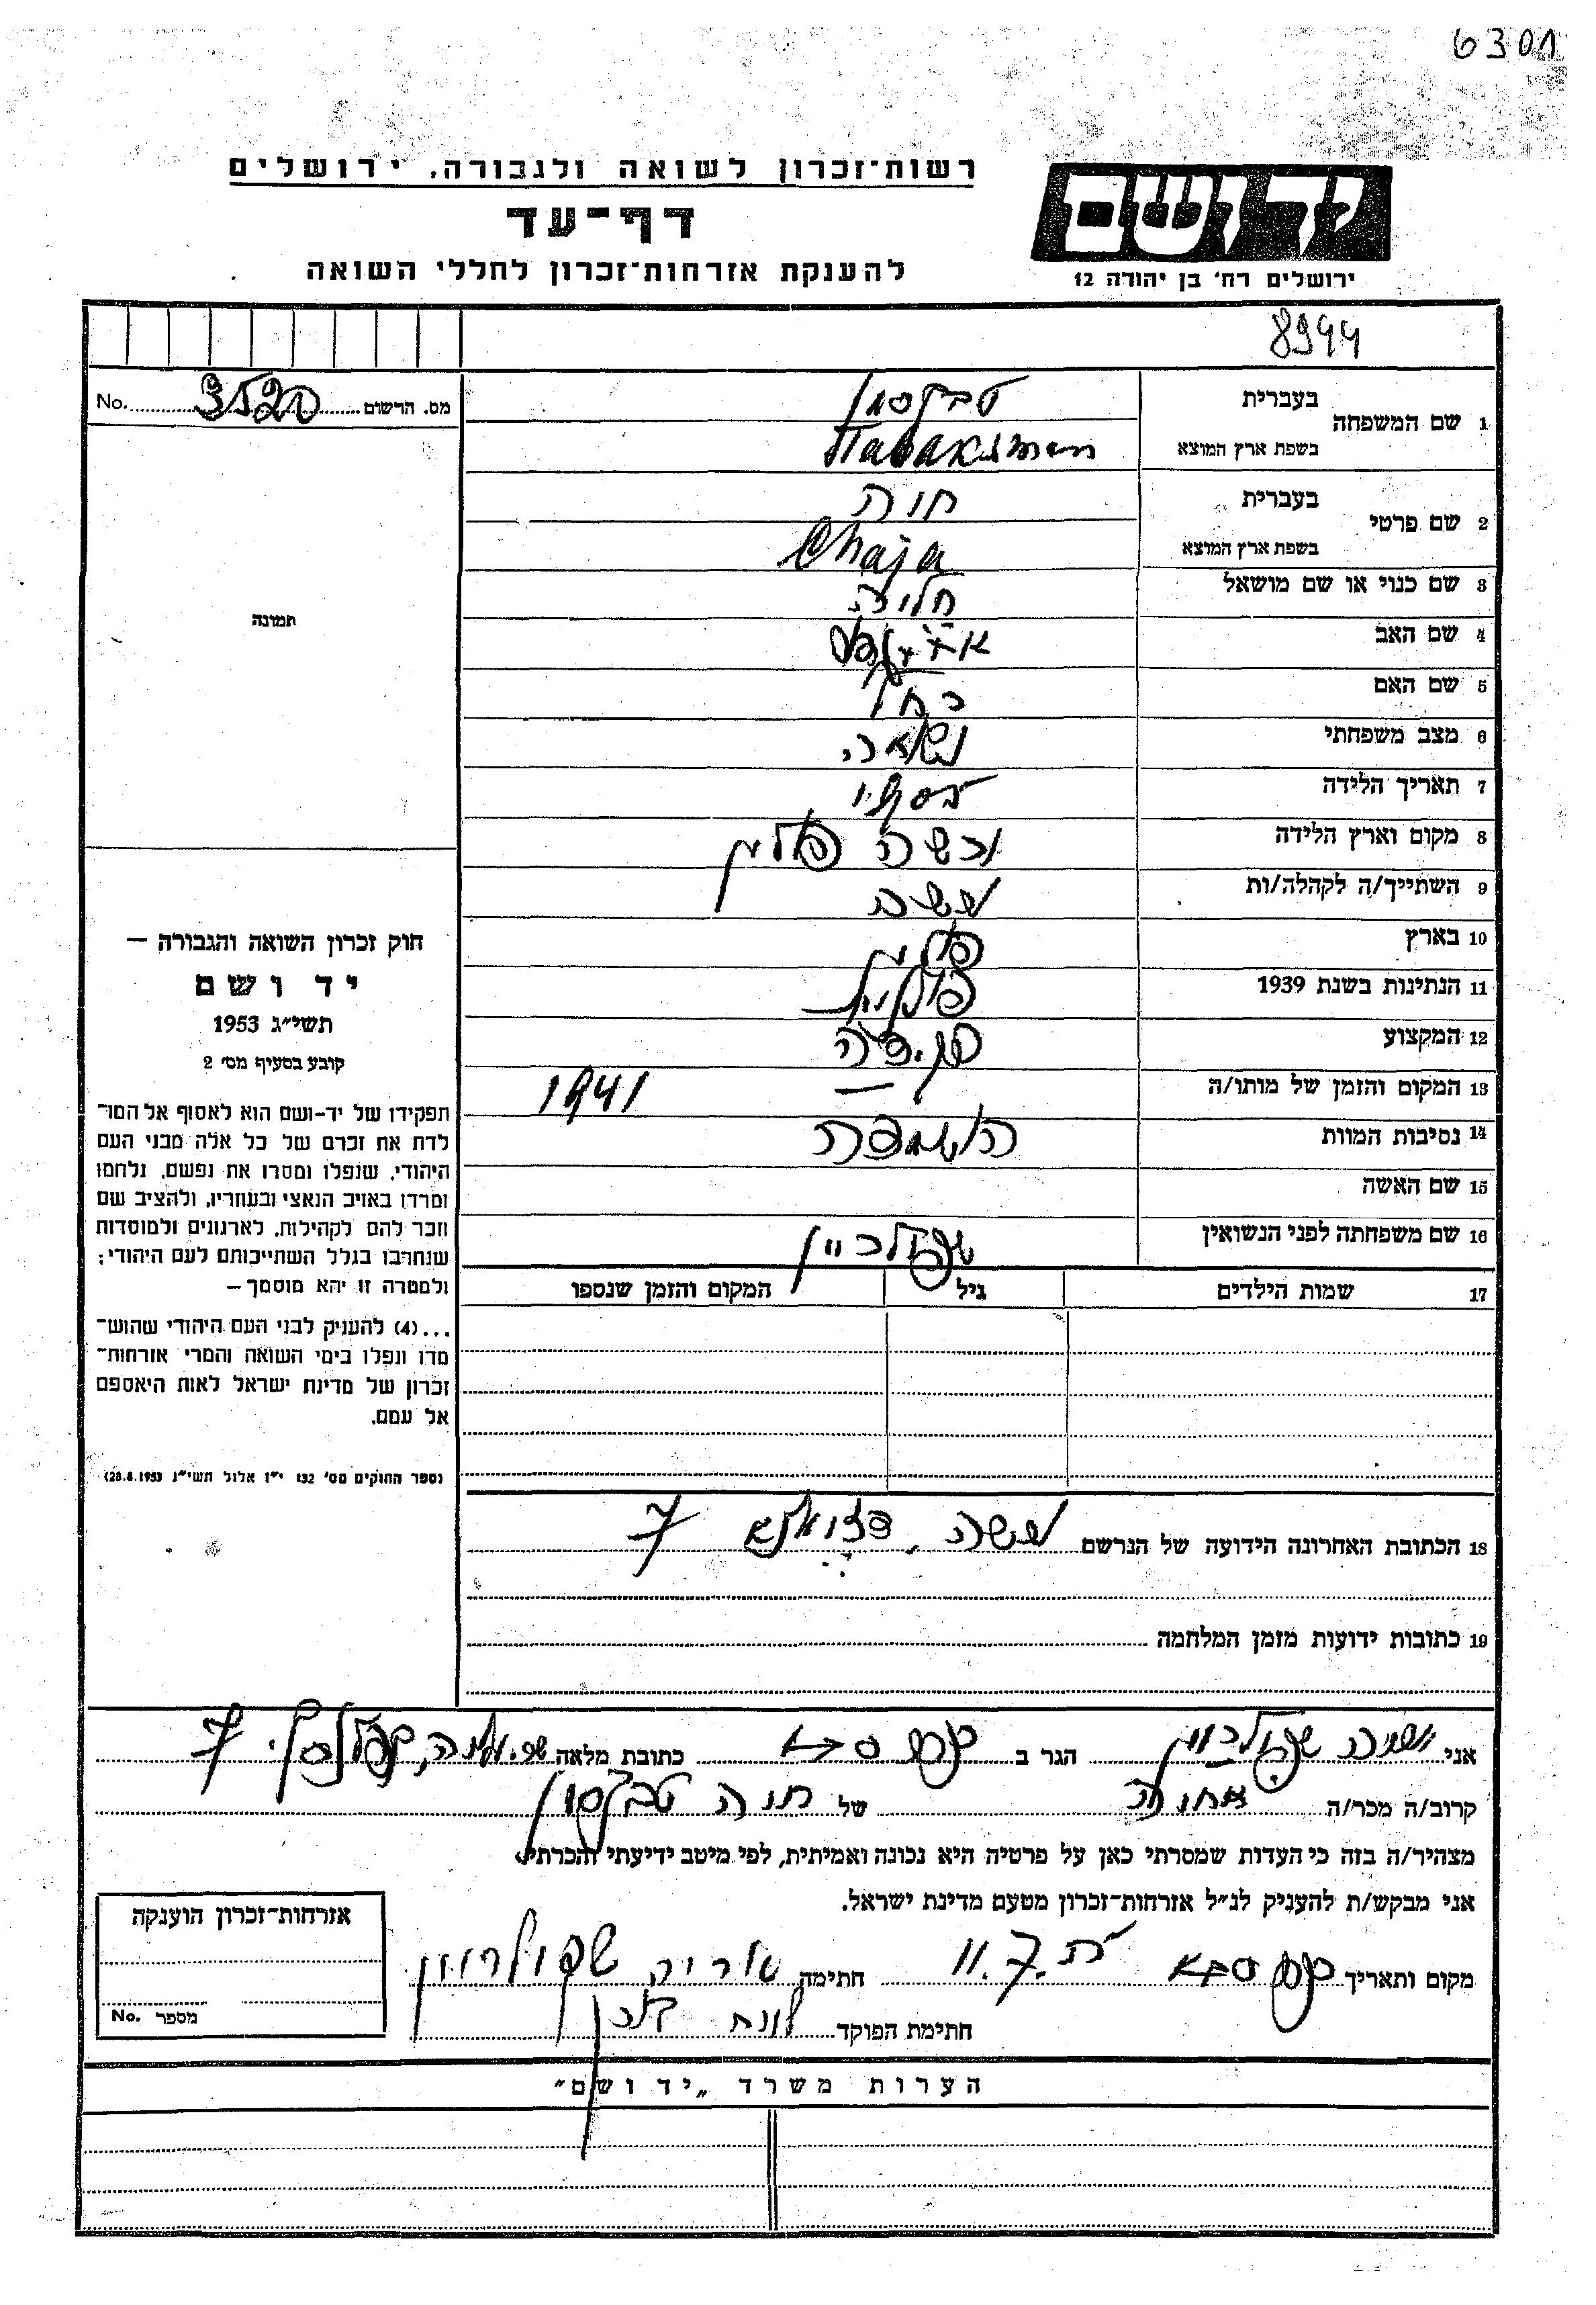 6301
רשות־זכרון לשואה ולגבורה, ירושלים
דף־עד
להענקת אזרחות־זכרון לחללי השואה
יד ושם
ירושלים רח' בן יהודה 12
8944
מס. הרשום 3520 No.
1 שם המשפחה
בעברית טבקסמן
בשפת ארץ המוצא Tabaksman
2 שם פרטי
בעברית חוה
בשפת ארץ המוצא Chaja
3 שם כנוי או שם מושאל
4 שם האב
5 שם האם רחל
6 מצב משפחתי נשואה
7 תאריך הלידה
8 מקום וארץ הלידה ורשה פולין
9 השתייך/ה לקהלה/ות ורשה
10 בארץ פולין
11 הנתינות בשנת 1939 פולנית
12 המקצוע
13 המקום והזמן של מותו/ה — 1941
14 נסיבות המוות השמדה
15 שם האשה
16 שם משפחתה לפני הנשואין
17 שמות הילדים גיל המקום והזמן שנספו
תמונה
חוק זכרון השואה והגבורה —
יד ושם
תשי"ג 1953
קובע בסעיף מס' 2
תפקידו של יד-ושם הוא לאסוף אל המו־
לדת את זכרם של כל אלה מבני העם
היהודי, שנפלו ומסרו את נפשם, נלחמו
ומרדו באויב הנאצי ובעוזריו, ולהציב שם
וזכר להם לקהילות, לארגונים ולמוסדות
שנחרבו בגלל השתייכותם לעם היהודי;
ולמטרה זו יהא מוסמך —
...(4) להעניק לבני העם היהודי שהוש־
מדו ונפלו בימי השואה והמרי אזרחות־
זכרון של מדינת ישראל לאות היאספם
אל עמם.
(ספר החוקים מס' 132 י"ז אלול תשי"ג 28.8.1953)
18 הכתובת האחרונה הידועה של הנרשם ורשה, 7
19 כתובות ידועות מזמן המלחמה
אני הגר ב כפר סבא כתובת מלאה 7
קרוב/ה מכר/ה של חוה טבקסמן
מצהיר/ה בזה כי העדות שמסרתי כאן על פרטיה היא נכונה ואמיתית, לפי מיטב ידיעתי והכרתי.
אני מבקש/ת להעניק לנ"ל אזרחות־זכרון מטעם מדינת ישראל.
מקום ותאריך כפר סבא 11.7. חתימה
חתימת הפוקד
אזרחות־זכרון הוענקה
מספר No.
הערות משרד „יד ושם"